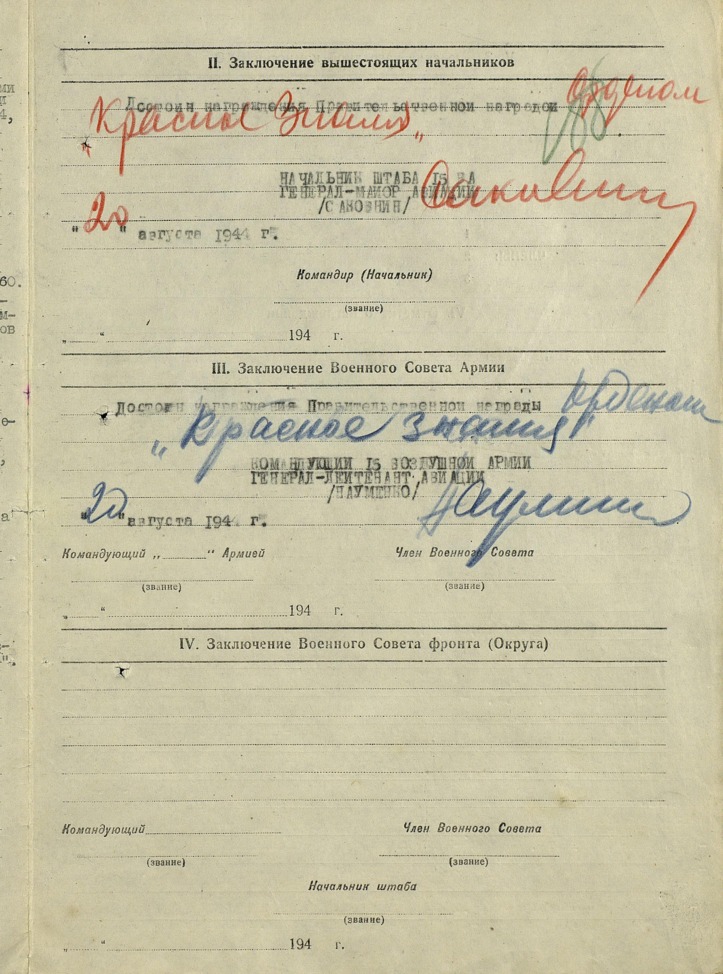 II. Заключение вышестоящих начальников
Достоин награждения Правительственной наградой Орденом
"Красное Знамя"
НАЧАЛЬНИК ШТАБА 15 ВА
ГЕНЕРАЛ-МАЙОР АВИАЦИИ
/САКОВНИН/
"20" августа 1944 г.
Командир (Начальник)
(звание)
„ “ 194 г.
III. Заключение Военного Совета Армии
Достоин награждения Правительственной награды Орденом
„Красное Знамя"
КОМАНДУЮЩИЙ 15 ВОЗДУШНОЙ АРМИИ
ГЕНЕРАЛ-ЛЕЙТЕНАНТ АВИАЦИИ
/НАУМЕНКО/
"20" августа 1944 г.
Командующий „ “ Армией Член Военного Совета
(звание) (звание)
„ “ 194 г.
IV. Заключение Военного Совета фронта (Округа)
Командующий Член Военного Совета
(звание) (звание)
Начальник штаба
(звание)
„ “ 194 г.